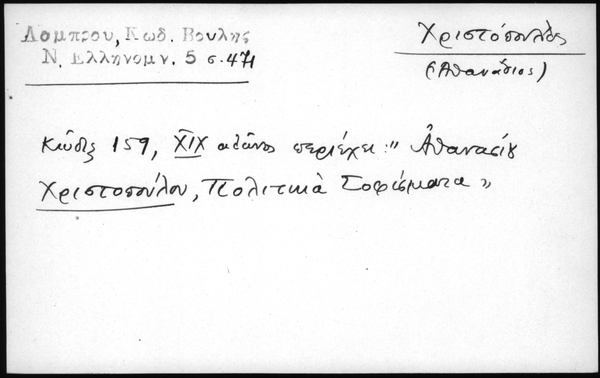 Λαμπρου, Κωδ. Βουλης
Ν. Ελληνομν. 5 σ. 471
Χριστόπουλος
(Ἀθανάσιος)
Κώδιξ 159, XIX αἰῶνος περιέχει: "Ἀθανασίου
Χριστοπούλου, Πολιτικὰ Σοφίσματα"